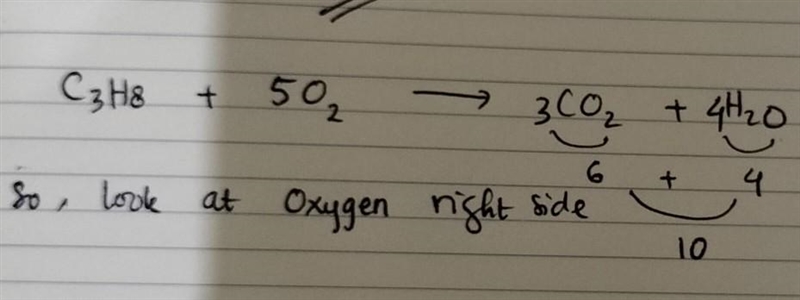 C₃H8 + 5O₂ ⟶ 3CO₂ + 4H₂O
6 + 4
So, look at Oxygen right side
10